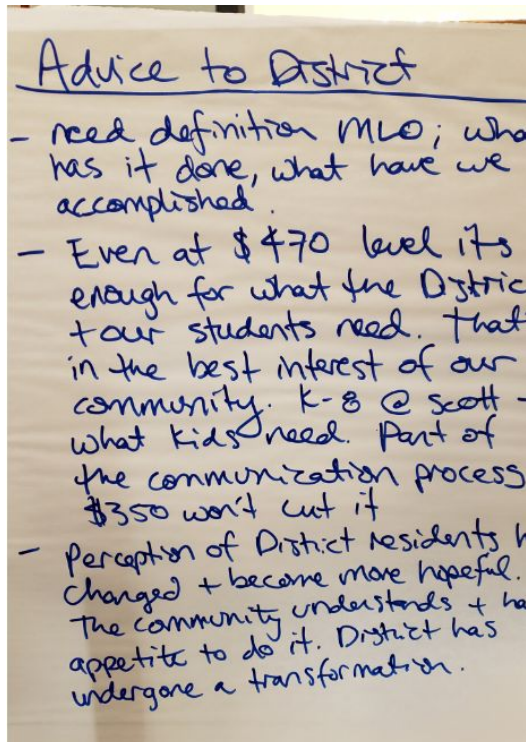 Advice to District
- need definition MLO; wha
has it done, what have we
accomplished.
- Even at $470 level its
enough for what the Distric
+ our students need. That
in the best interest of our
community. K-8 @ Scott -
what kids need. Part of
the communication process
$350 won't cut it
- Perception of District residents h
changed + become more hopeful.
The community understands + ha
appetite to do it. District has
undergone a transformation.